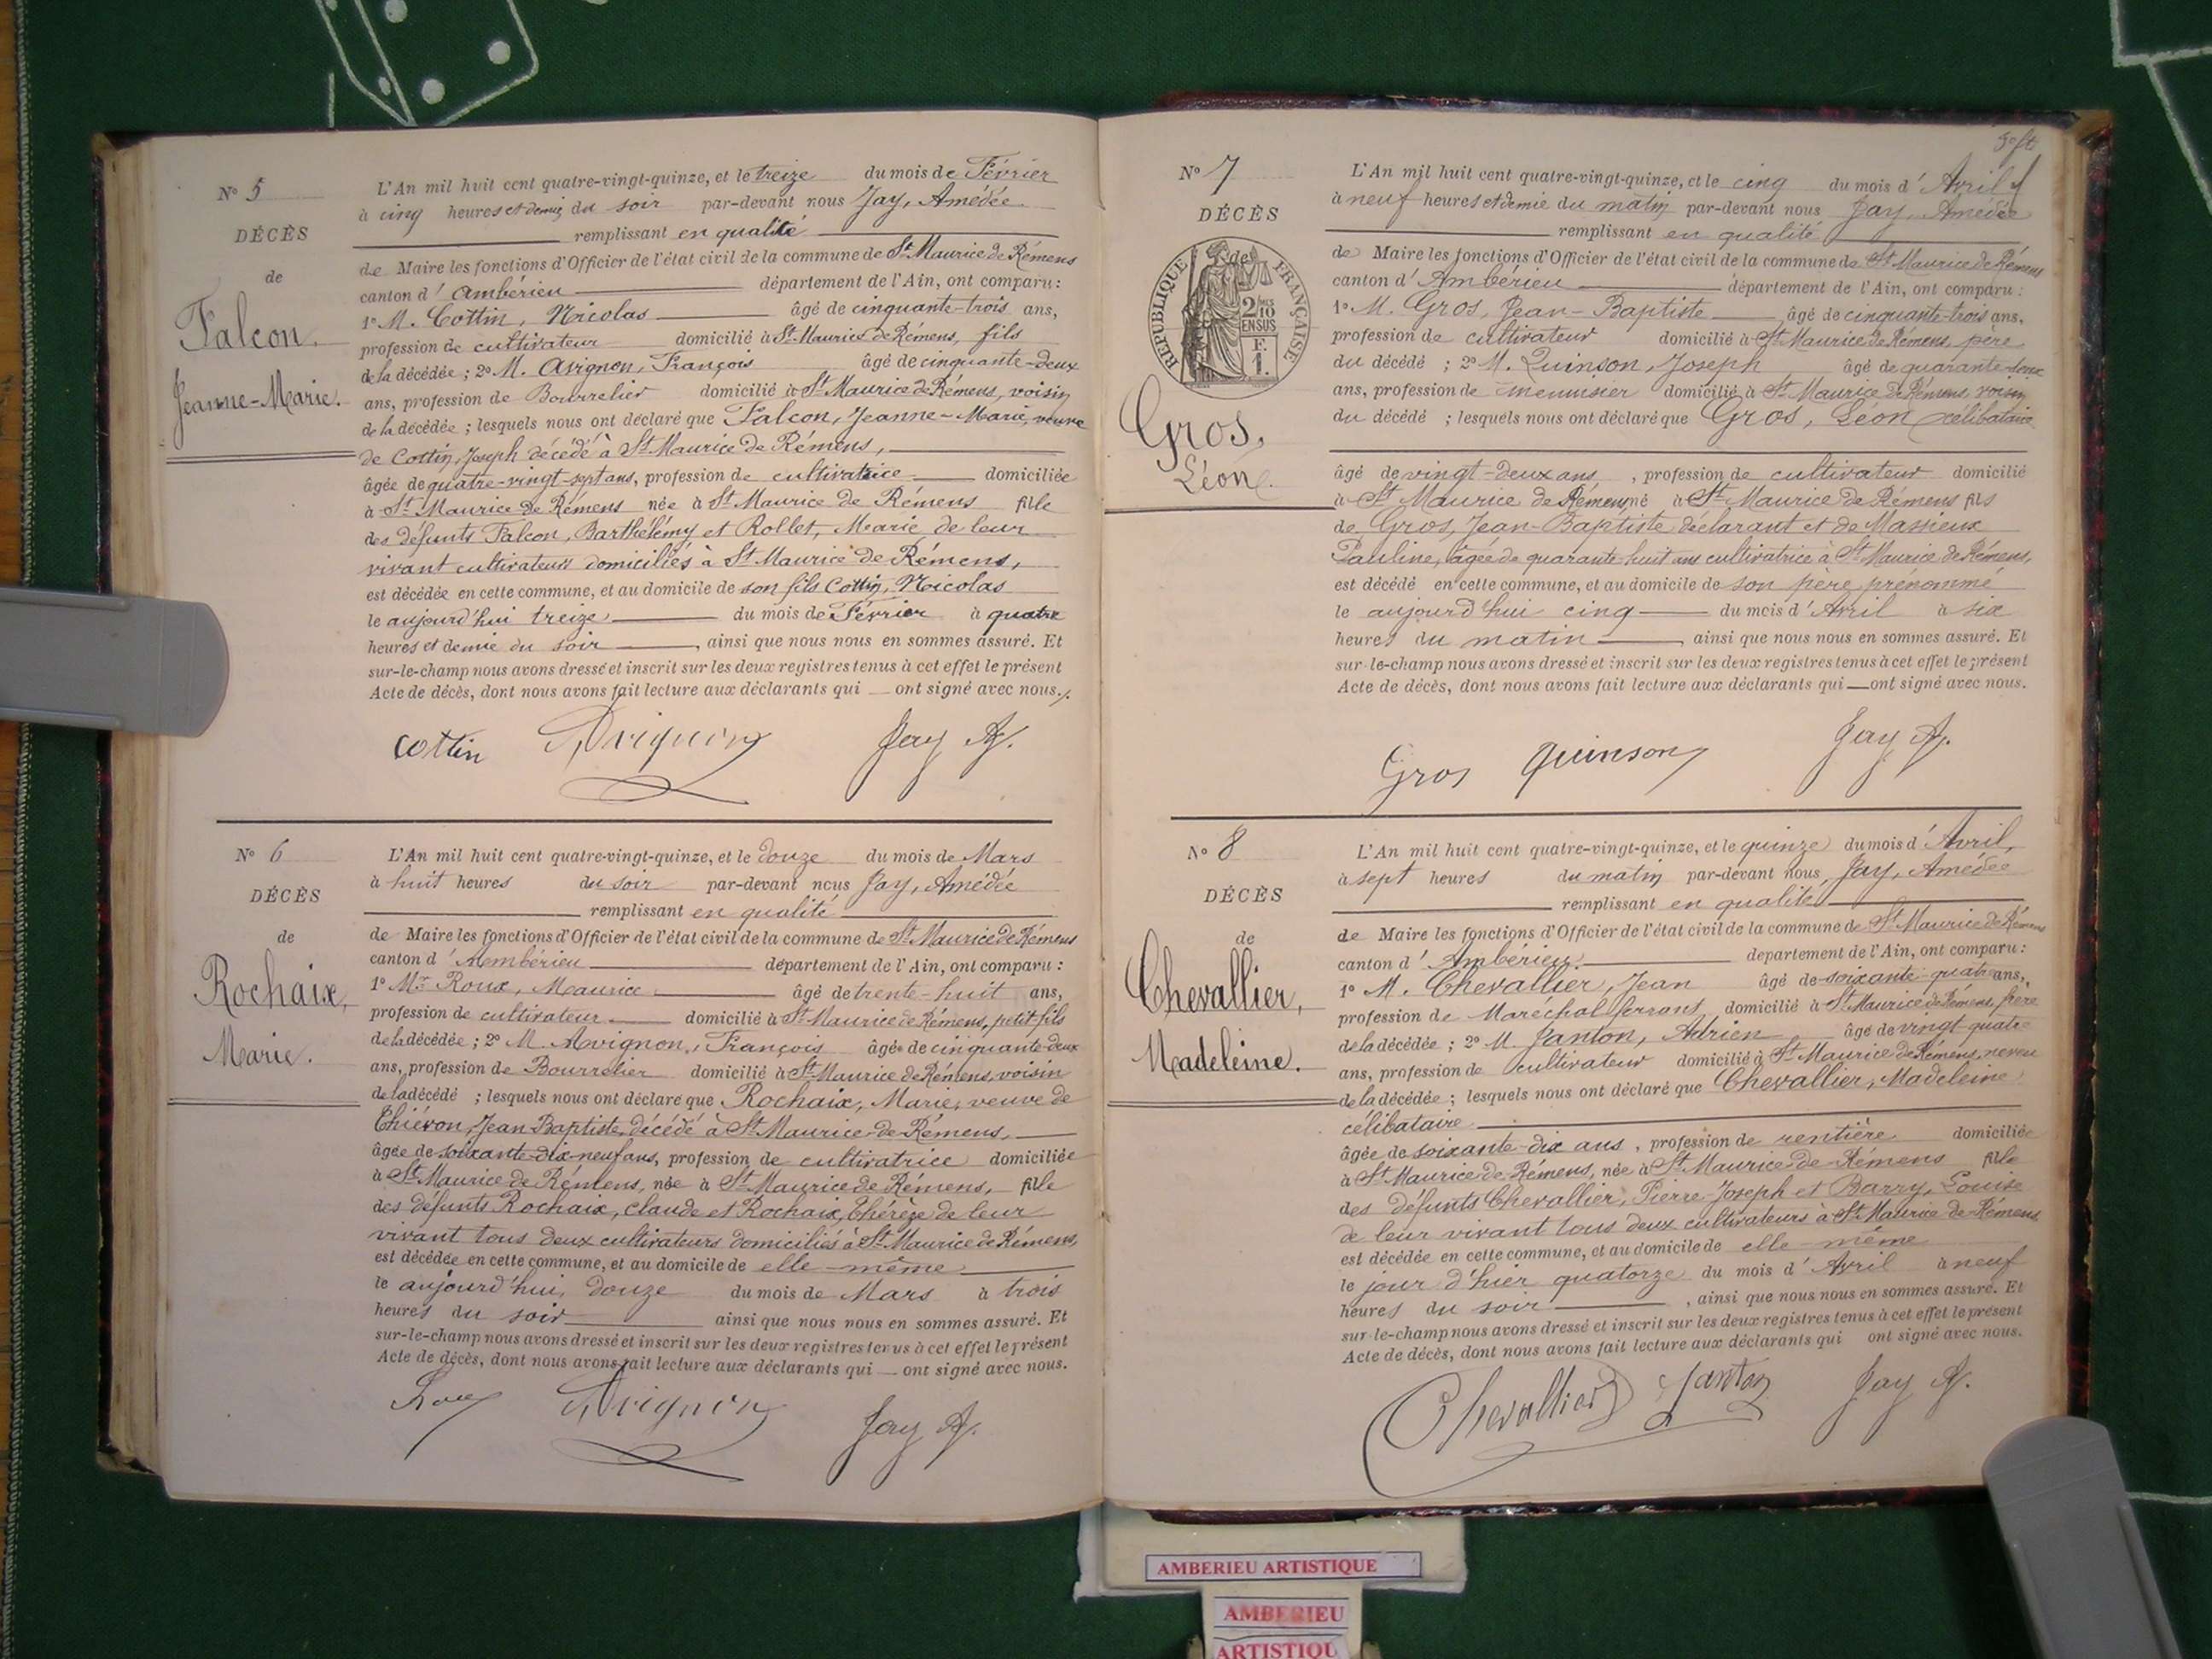 Nº 5
DÉCÈS
de
Falcon.
Jeanne-Marie.
L'An mil huit cent quatre-vingt-quinze, et le treize du mois de Février
à cinq heures et demie du soir par-devant nous Jay, Amédée
remplissant en qualité
de Maire les fonctions d'Officier de l'état civil de la commune de St Maurice de Rémens
canton d'Ambérieu département de l'Ain, ont comparu :
1º M. Cottin, Nicolas âgé de cinquante-trois ans,
profession de cultivateur domicilié à St Maurice de Rémens, fils
de la décédée ; 2º M. Avignon, François âgé de cinquante-deux
ans, profession de Bourrelier domicilié à St Maurice de Rémens, voisin
de la décédée ; lesquels nous ont déclaré que Falcon, Jeanne-Marie, veuve
de Cottin, Joseph décédé à St Maurice de Rémens,
âgée de quatre-vingt-sept ans, profession de cultivatrice domiciliée
à St Maurice de Rémens née à St Maurice de Rémens fille
des défunts Falcon, Barthélémy et Rollet, Marie de leur
vivant cultivateurs domiciliés à St Maurice de Rémens,
est décédée en cette commune, et au domicile de son fils Cottin, Nicolas
le aujourd'hui treize du mois de Février à quatre
heures et demie du soir, ainsi que nous nous en sommes assuré. Et
sur-le-champ nous avons dressé et inscrit sur les deux registres tenus à cet effet le présent
Acte de décès, dont nous avons fait lecture aux déclarants qui ont signé avec nous.
cottin Avignon Jay A.
Nº 6
DÉCÈS
de
Rochaix,
Marie.
L'An mil huit cent quatre-vingt-quinze, et le douze du mois de Mars
à huit heures du soir par-devant nous Jay, Amédée
remplissant en qualité
de Maire les fonctions d'Officier de l'état civil de la commune de St Maurice de Rémens
canton d'Ambérieu département de l'Ain, ont comparu :
1º Mr Roux, Maurice âgé de trente-huit ans,
profession de cultivateur domicilié à St Maurice de Rémens, petit-fils
de la décédée ; 2º M. Avignon, François âgé de cinquante-deux
ans, profession de Bourrelier domicilié à St Maurice de Rémens, voisin
de la décédé ; lesquels nous ont déclaré que Rochaix, Marie, veuve de
Thiévon, Jean Baptiste, décédé à St Maurice de Rémens,
âgée de soixante-dix-neuf ans, profession de cultivatrice domiciliée
à St Maurice de Rémens, née à St Maurice de Rémens, fille
des défunts Rochaix, Claude et Rochaix, Thérèze de leur
vivant tous deux cultivateurs domiciliés à St Maurice de Rémens,
est décédée en cette commune, et au domicile de elle-même
le aujourd'hui, douze du mois de Mars à trois
heures du soir ainsi que nous nous en sommes assuré. Et
sur-le-champ nous avons dressé et inscrit sur les deux registres tenus à cet effet le présent
Acte de décès, dont nous avons fait lecture aux déclarants qui ont signé avec nous.
Roux Avignon Jay A.
Nº 7
DÉCÈS
de
RÉPUBLIQUE FRANÇAISE
2/10 EN SUS
F. 1.
Gros,
Léon.
L'An mil huit cent quatre-vingt-quinze, et le cinq du mois d'Avril
à neuf heures et demie du matin par-devant nous Jay, Amédée
remplissant en qualité
de Maire les fonctions d'Officier de l'état civil de la commune de St Maurice de Rémens
canton d'Ambérieu département de l'Ain, ont comparu :
1º. M. Gros, Jean-Baptiste âgé de cinquante-trois ans,
profession de cultivateur domicilié à St Maurice de Rémens, père
du décédé ; 2º M. Quinson, Joseph âgé de quarante-
ans, profession de menuisier domicilié à St Maurice de Rémens, voisin
du décédé ; lesquels nous ont déclaré que Gros, Léon célibataire
âgé de vingt-deux ans, profession de cultivateur domicilié
à St Maurice de Rémens, né à St Maurice de Rémens fils
de Gros, Jean-Baptiste déclarant et de Massieux
Pauline, âgée de quarante-huit ans cultivatrice à St Maurice de Rémens,
est décédé en cette commune, et au domicile de son père prénommé
le aujourd'hui cinq du mois d'Avril à six
heures du matin, ainsi que nous nous en sommes assuré. Et
sur-le-champ nous avons dressé et inscrit sur les deux registres tenus à cet effet le présent
Acte de décès, dont nous avons fait lecture aux déclarants qui ont signé avec nous.
Gros Quinson Jay A.
Nº 8
DÉCÈS
de
Chevallier,
Madeleine.
L'An mil huit cent quatre-vingt-quinze, et le quinze du mois d'Avril,
à sept heures du matin par-devant nous Jay, Amédée
remplissant en qualité
de Maire les fonctions d'Officier de l'état civil de la commune de St Maurice de Rémens
canton d'Ambérieu département de l'Ain, ont comparu :
1º M. Chevallier, Jean âgé de soixante-quatre ans,
profession de Maréchal ferrant domicilié à St Maurice de Rémens, frère
de la décédée ; 2º M. Janton, Adrien âgé de vingt-quatre
ans, profession de cultivateur domicilié à St Maurice de Rémens, neveu
de la décédée ; lesquels nous ont déclaré que Chevallier, Madeleine
célibataire
âgée de soixante-dix ans, profession de rentière domiciliée
à St Maurice de Rémens, née à St Maurice de Rémens fille
des défunts Chevallier, Pierre-Joseph et Barry, Louise
de leur vivant tous deux cultivateurs à St Maurice de Rémens
est décédée en cette commune, et au domicile de elle-même
le jour d'hier quatorze du mois d'Avril à neuf
heures du soir, ainsi que nous nous en sommes assuré. Et
sur-le-champ nous avons dressé et inscrit sur les deux registres tenus à cet effet le présent
Acte de décès, dont nous avons fait lecture aux déclarants qui ont signé avec nous.
Chevallier Janton Jay A.
AMBERIEU ARTISTIQUE
AMBERIEU
ARTISTIQU